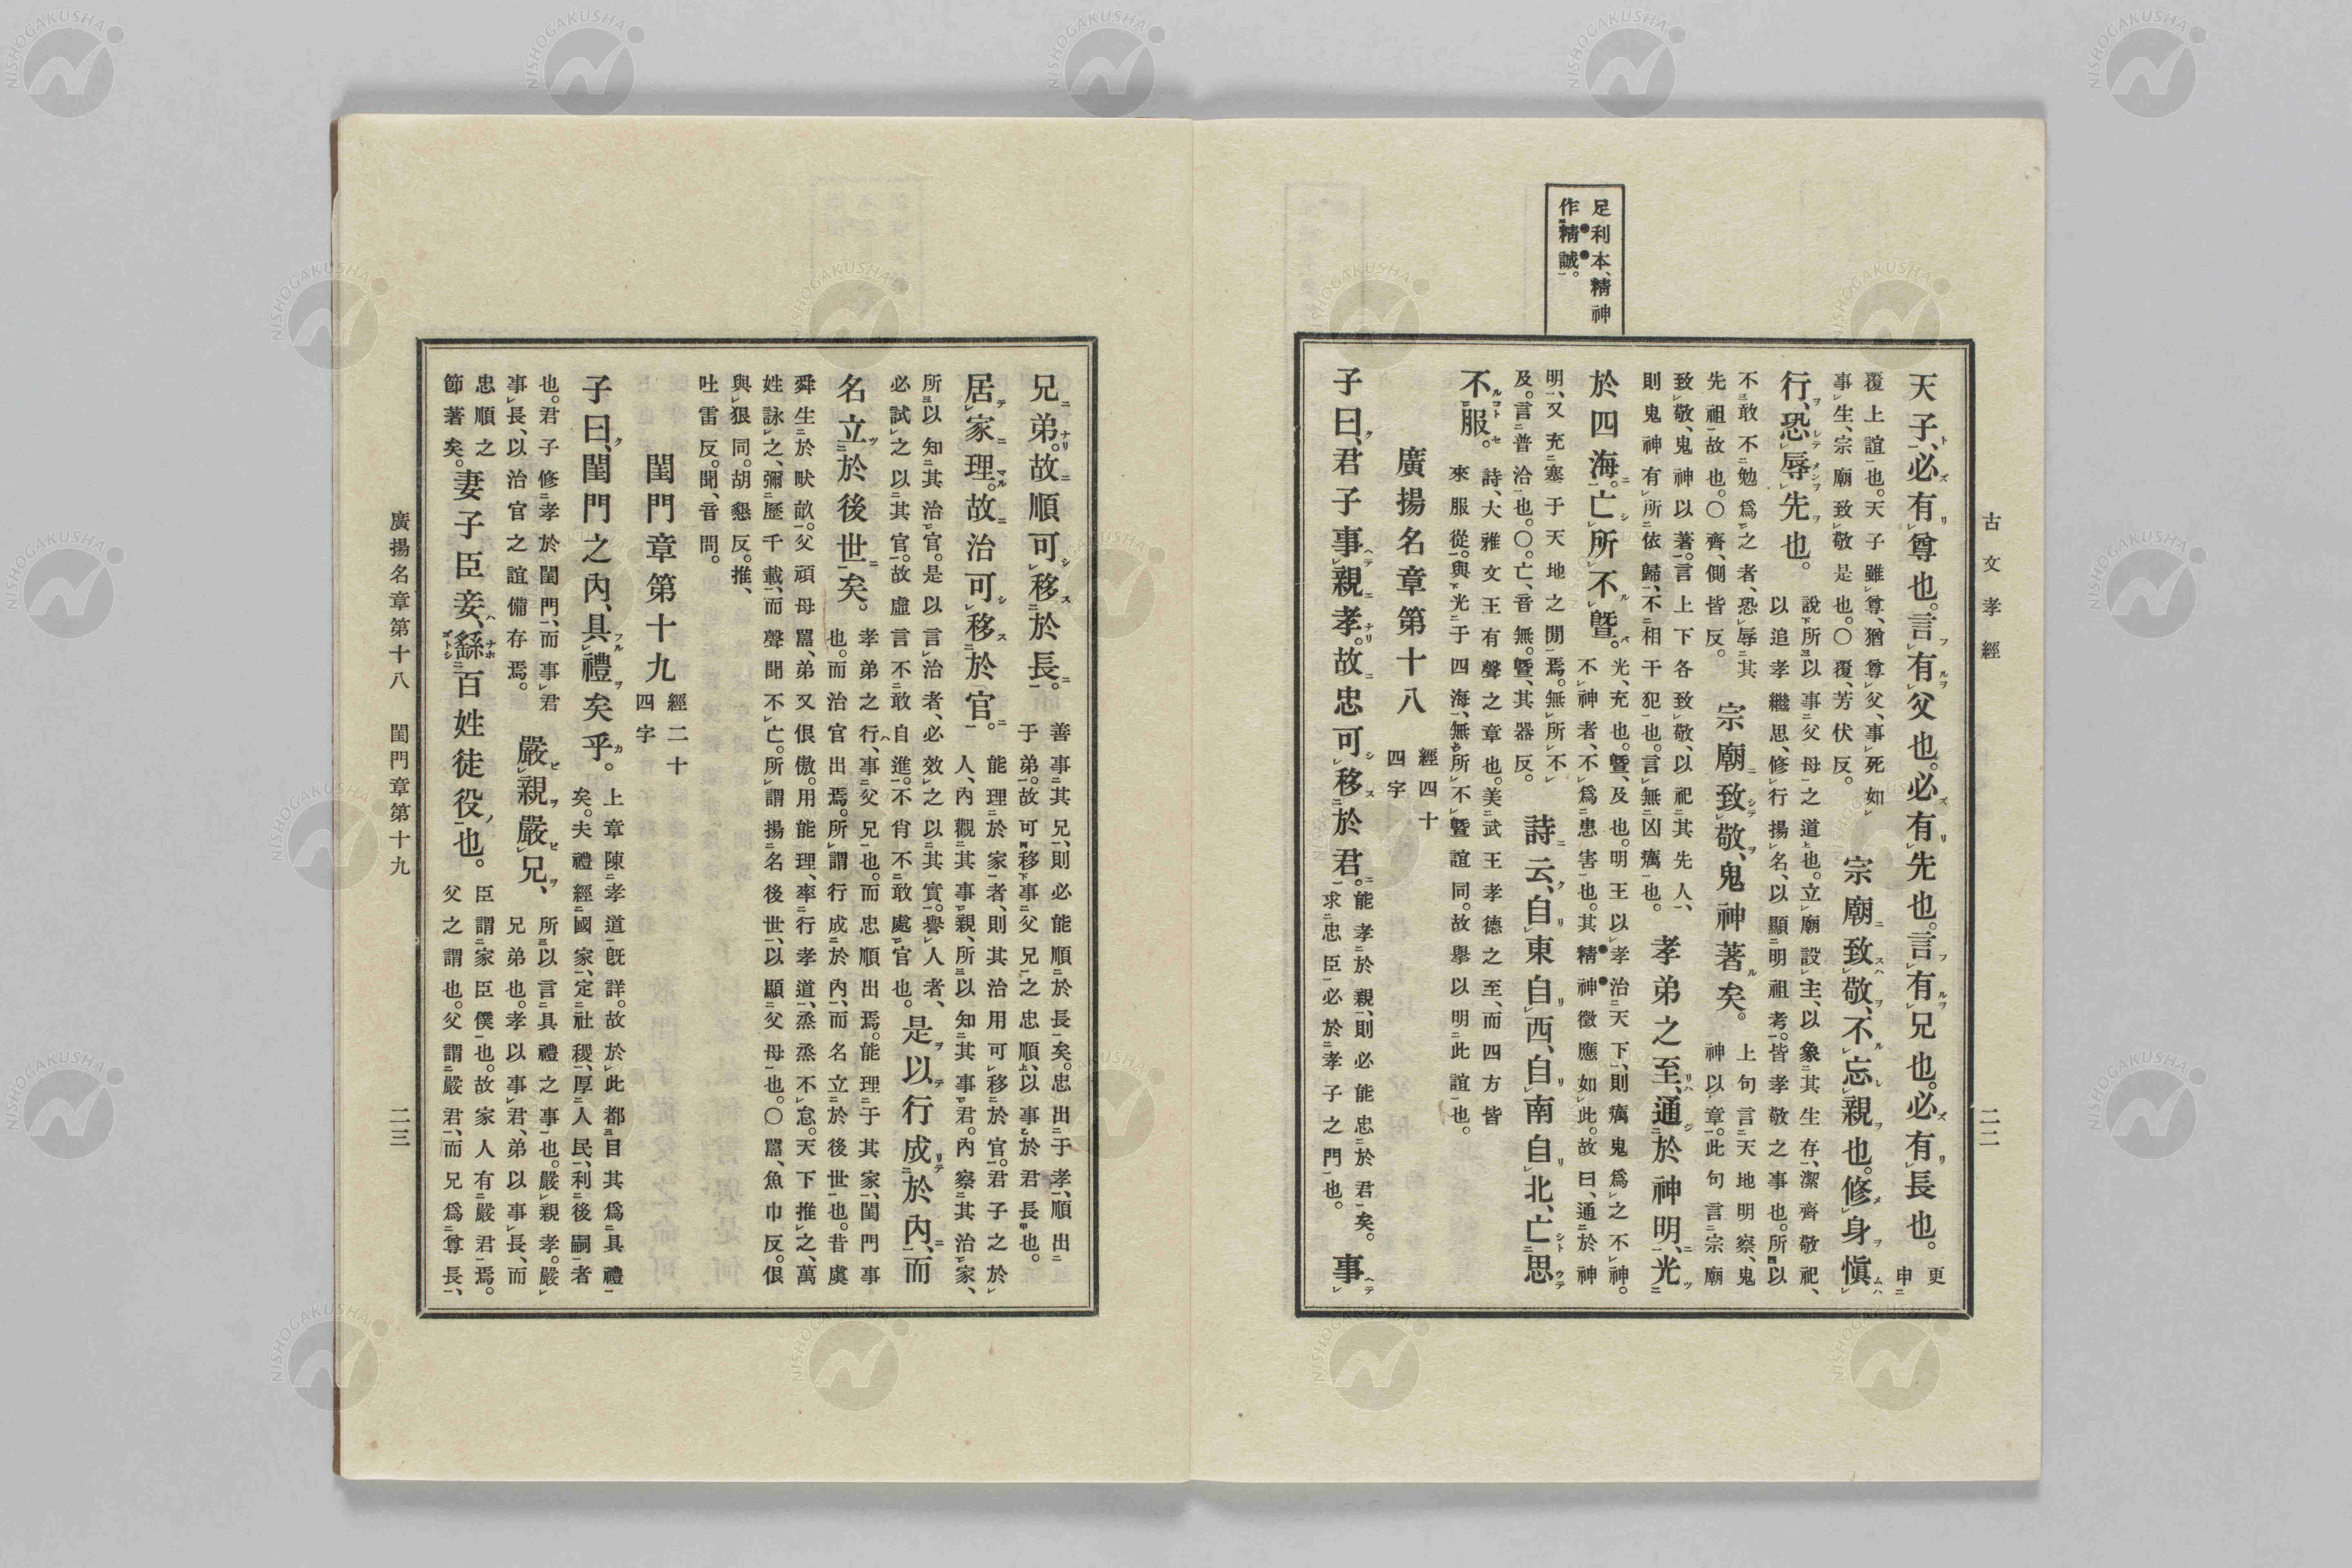 古文孝經
二二
足利本、精神
作精誠。
天子、必有尊也。言有父也。必有先也。言有兄也。必有長也。
更
申
覆上誼也。天子雖尊、猶尊父、事死如
事生、宗廟致敬是也。○覆、芳伏反。
宗廟致敬、不忘親也。修身愼
行、恐辱先也。
說所以事父母之道也。立廟設主、以象其生存、潔齊敬祀、
以追孝繼思、修行揚名、以顯明祖考。皆孝敬之事也。所以
不敢不勉爲之者、恐辱其
先祖故也。○齊、側皆反。
宗廟致敬、鬼神著矣。
上句言天地明察、鬼
神以章。此句言宗廟
致敬、鬼神以著。言上下各致敬、以祀其先人、
則鬼神有所依歸、不相干犯也。言無凶癘也。
孝弟之至、通於神明、光
於四海。亡所不曁。
光、充也。曁、及也。明王以孝治天下、則癘鬼爲之不神。
不神者、不爲患害也。其精神徵應如此。故曰、通於神
明、又充塞于天地之閒焉。無所不
及。言普洽也。○亡、音無。曁、其器反。
詩云、自東自西、自南自北、亡思
不服。
詩、大雅文王有聲之章也。美武王孝德之至、而四方皆
來服從。與光于四海、無所不曁誼同。故擧以明此誼也。
廣揚名章第十八
經四十
四字
子曰、君子事親孝。故忠可移於君。
能孝於親、則必能忠於君矣。
求忠臣必於孝子之門也。
事
兄弟。故順可移於長。
善事其兄、則必能順於長矣。忠出于孝、順出
于弟。故可移事父兄之忠順、以事於君長也。
居家理。故治可移於官。
能理於家者、則其治用可移於官。君子之於
人、內觀其事親、所以知其事君。內察其治家、
所以知其治官。是以言治者、必效之以其實。譽人者、
必試之以其官。故虛言不敢自進。不肯不敢處官也。
是以行成於內、而
名立於後世矣。
孝弟之行、事父兄也。而忠順出焉。能理于其家、閨門事
也。而治官出焉。所謂行成於內、而名立於後世也。昔虞
舜生於畎畝。父頑母嚚、弟又佷傲。用能理、率行孝道、烝烝不怠。天下推之、萬
姓詠之、彌歷千載、而聲聞不亡。所謂揚名後世、以顯父母也。○嚚、魚巾反。佷
與狠同。胡懇反。推、
吐雷反。聞、音問。
閨門章第十九
經二十
四字
子曰、閨門之內、具禮矣乎。
上章陳孝道旣詳。故於此都目其爲具禮
矣。夫禮經國家、定社稷、厚人民、利後嗣者
也。君子修孝於閨門、而事君
事長、以治官之誼備存焉。
嚴親嚴兄、
所以言具禮之事也。嚴親孝。嚴
兄弟也。孝以事君、弟以事長、而
忠順之
節著矣。
妻子臣妾、繇百姓徒役也。
臣謂家臣僕也。故家人有嚴君焉。
父之謂也。父謂嚴君、而兄爲尊長、
廣揚名章第十八　閨門章第十九
二三
NISHOGAKUSHA